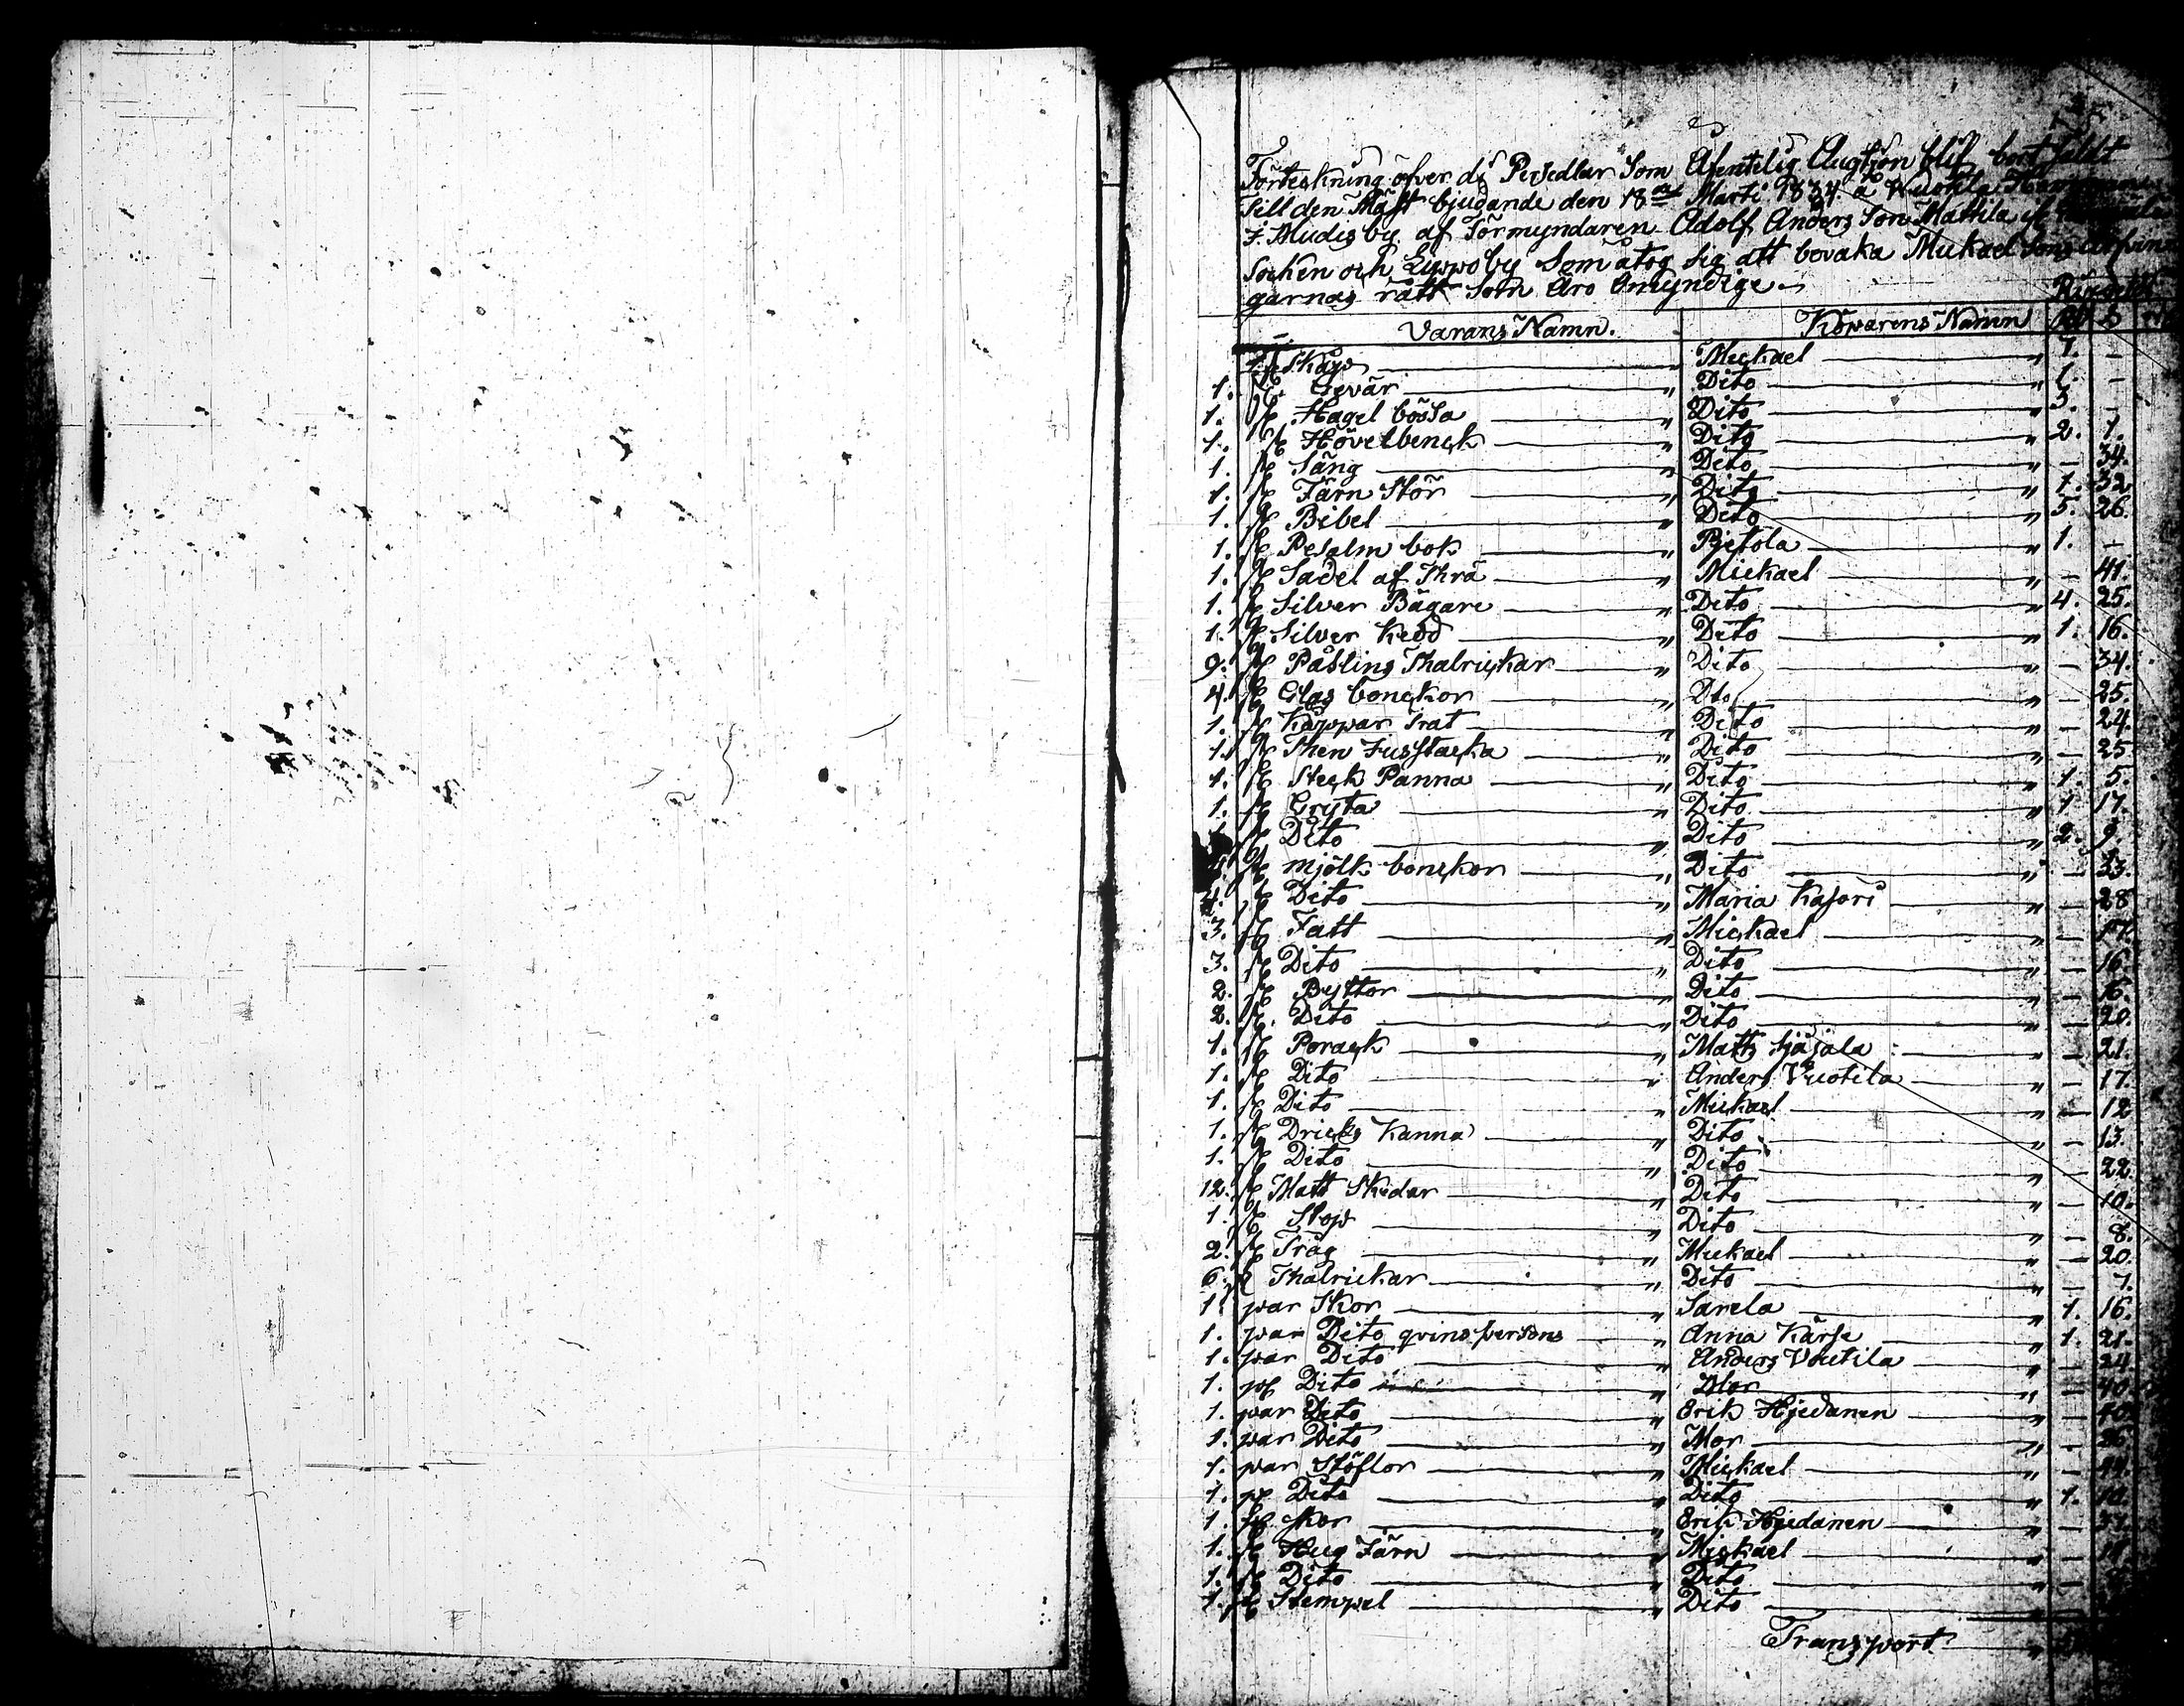 Förteskning öfver di Persedlar Som Ofentelig Augtjon blif bort Saldt
Till den Mäst bjudande den 18de Marti 1834 å Wuotila
i Mudis by af Förmyndaren Adolf Anders Son Mattila
Socken och Luppo by Som åtog sig att bevaka Mickael Sons
garnas rätt Som äro Omyndige
Varans Namn. Köparens Namn
Skåp Mickael 7. —
1. st Gevär Dito 1. —
1. st Hagel bössa Dito 3. —
1. st Hövelbenck Dito 2. 7.
1. st Säng Dito — 34.
1. st Järn Stör Dito 1. 32
1. st Bibel Dito 5. 26.
1. st Pesalm bok Pjetola 1. —
1. st Sadel af Thrä Mickael — 41.
1. st Silver Bägare Dito 4. 25.
1. st Silver Kedd Dito 1. 16.
9. st Påsling Thalrickar Dito — 34.
4. st Glas bonckor Dto — 25.
1. st Koppar Frat Dito — 24.
1. st Then Jusstacka Dito — 25
1. st Steck Panna Dito 1. 5.
1. st Gryta Dito 1 17.
1. st Dito Dito 2. 9.
st mjölk bonckor Dito — 23.
4. st Dito Maria Kasori — 28
3. st Fatt Mickael — 17.
3. st Dito Dito — 16.
2. st Byttor Dito — 16.
2. st Dito Dito — 20.
1. st Porack Matts Sjäjala — 21.
1. st Dito Anders Vuotila — 17.
1. st Dito Mickael — 12
1. st Dricks Kanna Dito — 13.
1. st Dito Dito — 22.
12. st Matt Skedar Dito — 10.
1. st Stop Dito — 8.
2. st Tråg Mickael — 20.
6. st Thalrickar Dito — 7.
1. par Skor Sarela 1. 16.
1. par Dito qvinspersons Anna Kärse 1. 21.
1. par Dito Anders Voutila — 24.
1. pr Dito Mor — 40.
1. par Dito Erik Hjedanen — 40.
1. par Dito Mor — 26.
1. par Stöflor Mickael —
1. pr Dito Dito 1.
1. pr skor Erik Hjedanen —
1. st Hug Järn Mickael —
1. st Dito Dito —
1. st Stempel Dito
Transport